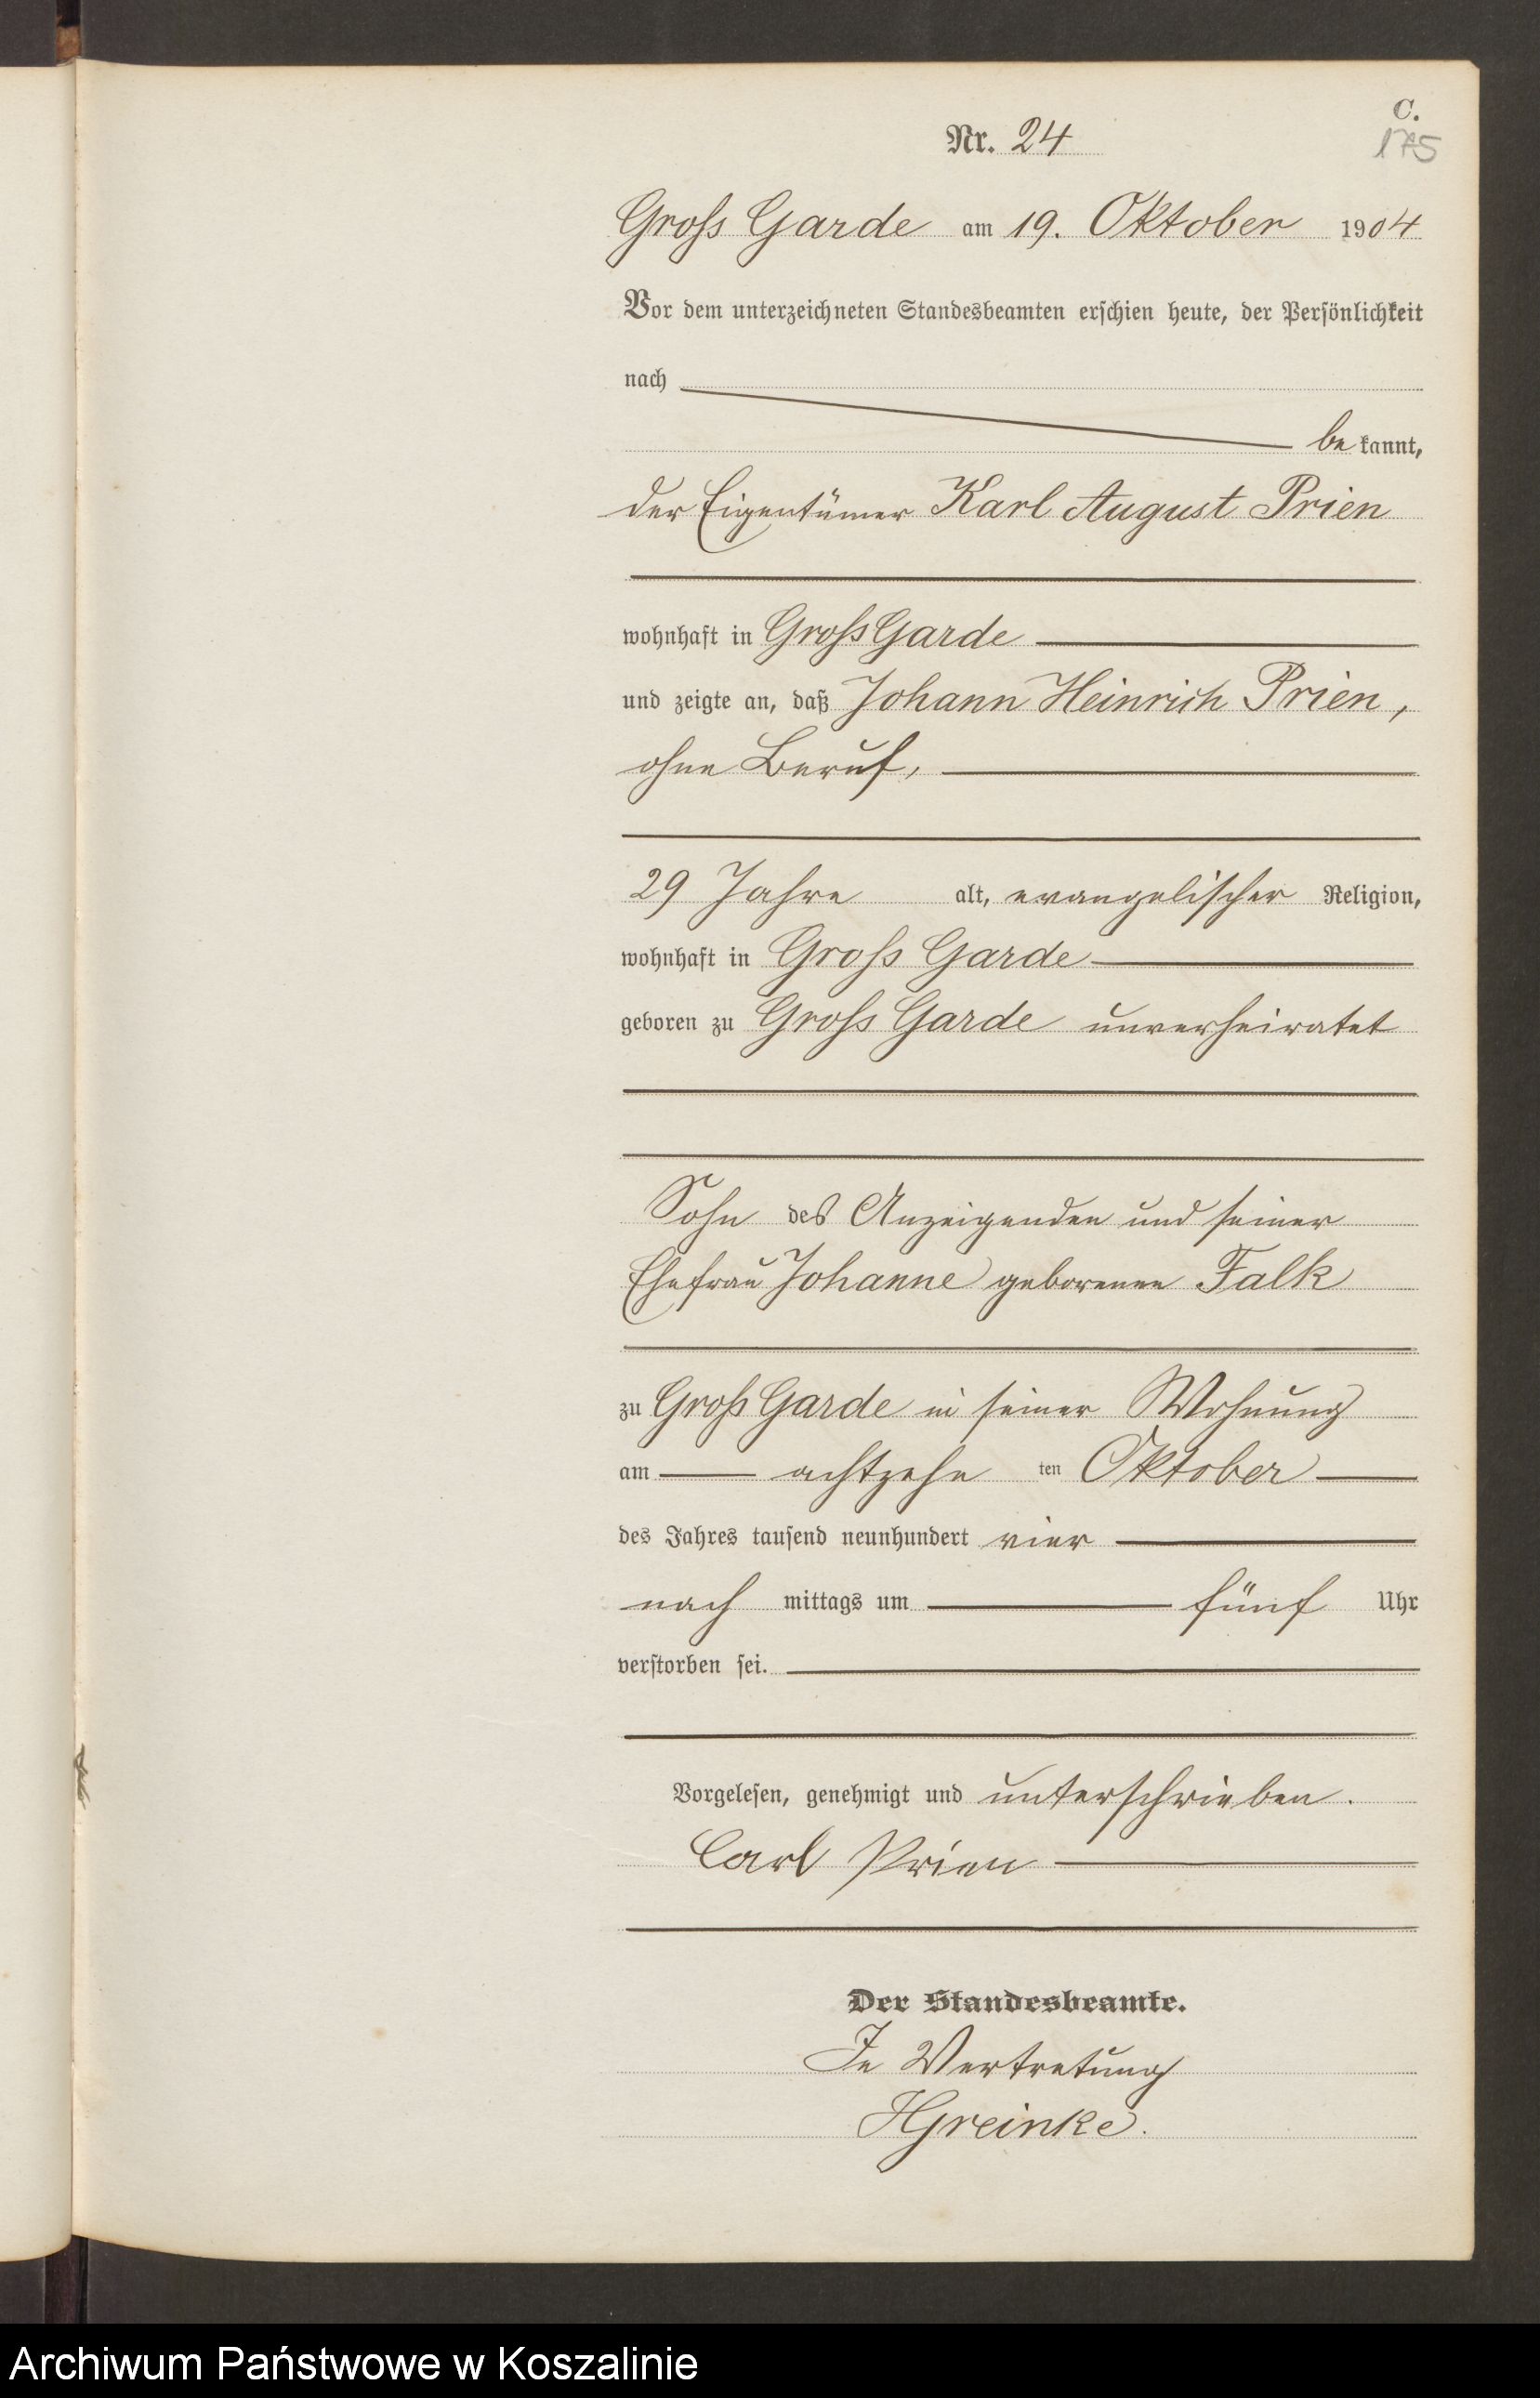 C.
Nr. 24
175
Groß Garde am 19. Oktober 1904
Vor dem unterzeichneten Standesbeamten erschien heute, der Persönlichkeit
nach
be kannt,
der Eigentümer Karl August Prien
wohnhaft in Groß Garde
und zeigte an, daß Johann Heinrich Prien,
ohne Beruf,
29 Jahre alt, evangelischer Religion,
wohnhaft in Groß Garde
geboren zu Groß Garde unverheiratet
Sohn des Anzeigenden und seiner
Ehefrau Johanne geborenen Falk
zu Groß Garde in seiner Wohnung
am achtzehn ten Oktober
des Jahres tausend neunhundert vier
nach mittags um fünf Uhr
verstorben sei.
Vorgelesen, genehmigt und unterschrieben.
Carl Prien
Der Standesbeamte.
In Vertretung
HGreinke.
Archiwum Państwowe w Koszalinie